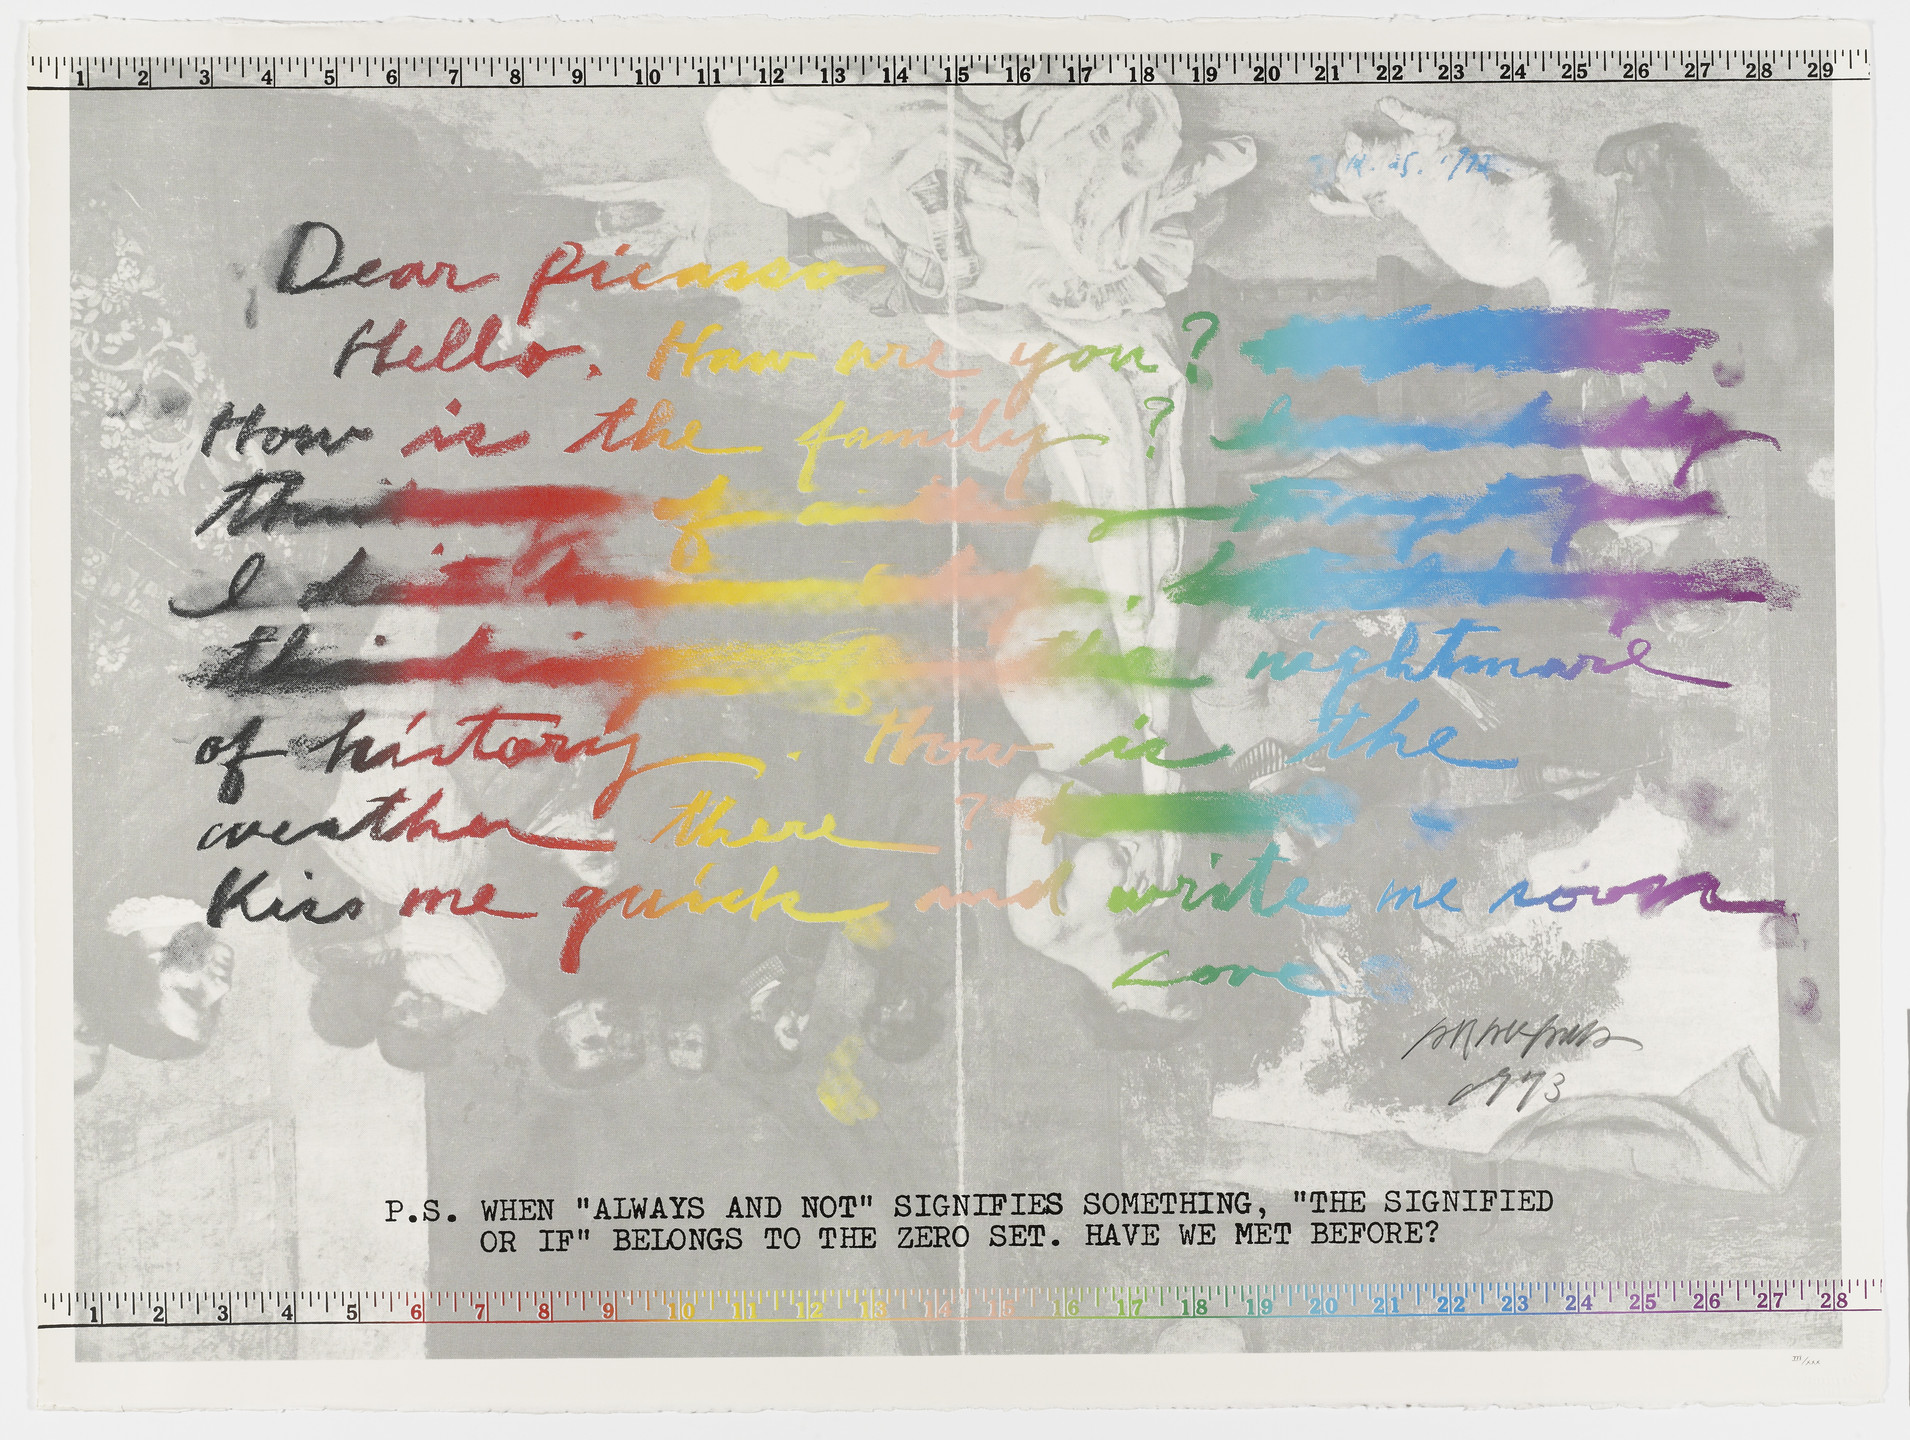 1 2 3 4 5 6 7 8 9 10 11 12 13 14 15 16 17 18 19 20 21 22 23 24 25 26 27 28 29
Dear Picasso
Hello. How are you?
How is the family?
of
I
the nightmare
of history. How is the
weather there?
Kiss me quick and write me soon
Love
1973
P.S. WHEN "ALWAYS AND NOT" SIGNIFIES SOMETHING, "THE SIGNIFIED
OR IF" BELONGS TO THE ZERO SET. HAVE WE MET BEFORE?
1 2 3 4 5 6 7 8 9 10 11 12 13 14 15 16 17 18 19 20 21 22 23 24 25 26 27 28
III/XXX